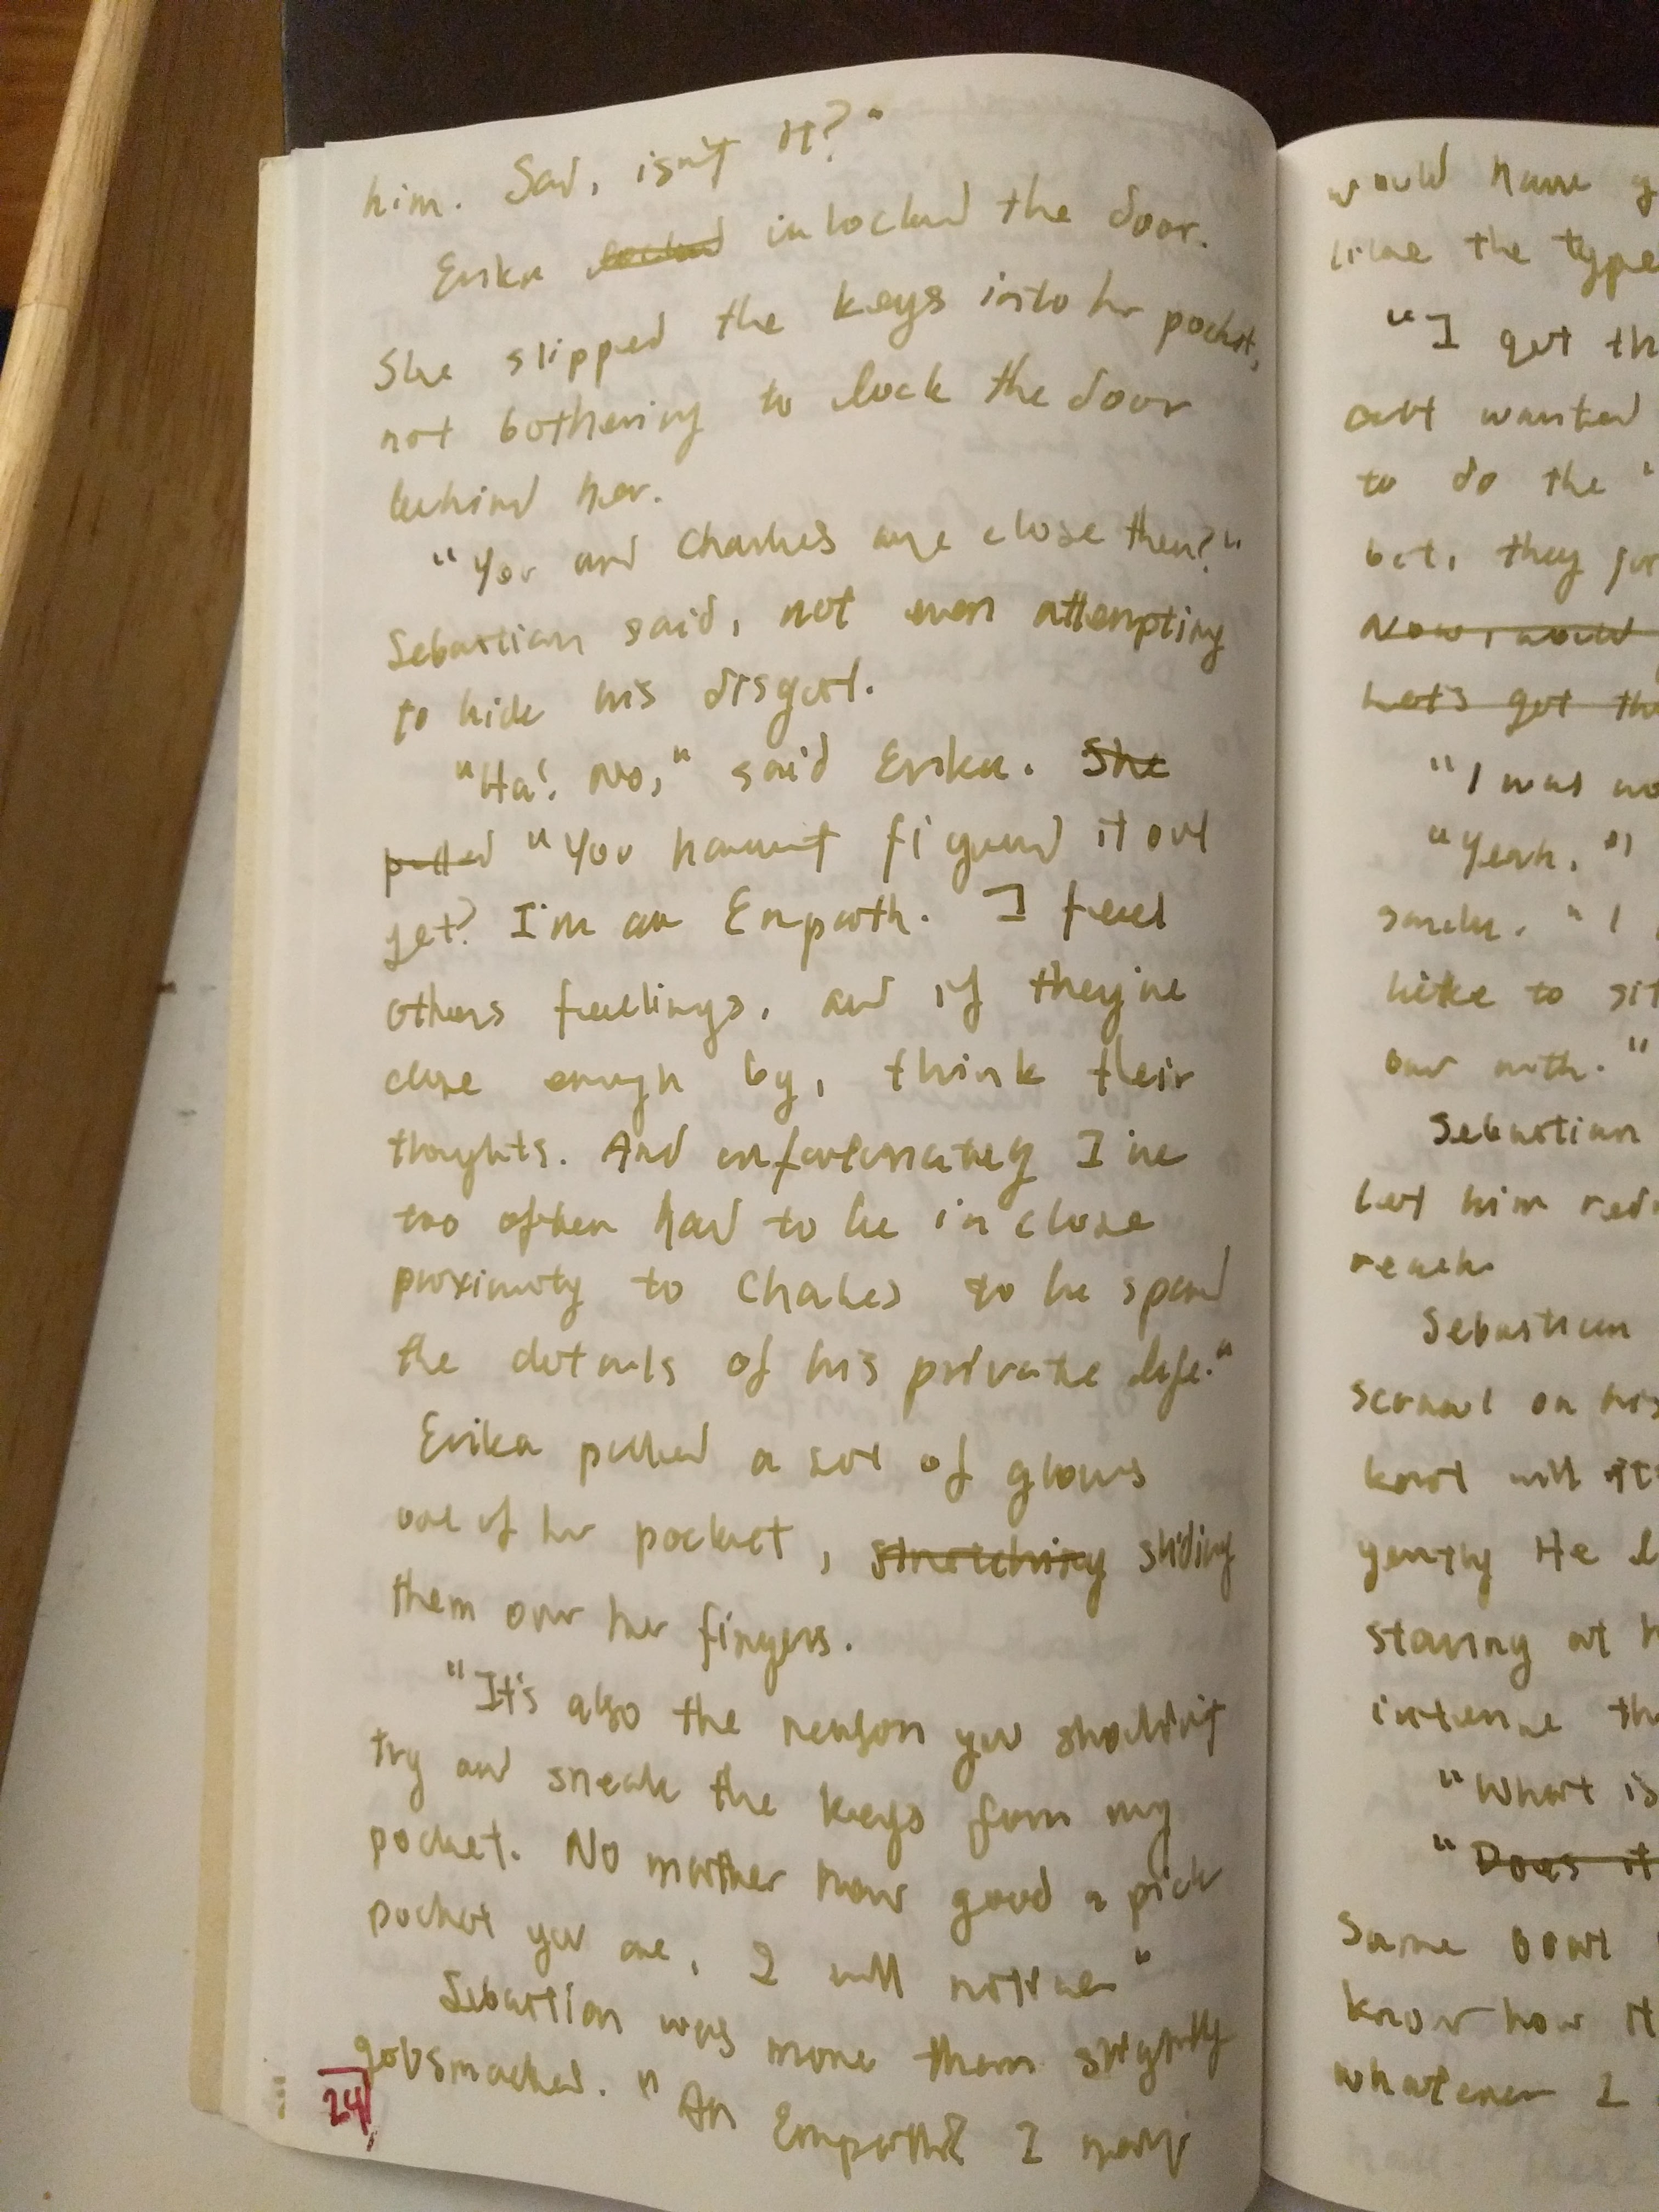 him. Sad, isn't it?"
Erika locked unlocked the door.
She slipped the keys into her pocket,
not bothering to lock the door
behind her.
"You and Charles are close then?"
Sebastian said, not even attempting
to hide his disgust.
"Ha! No," said Erika. She
pulled "You haven't figured it out
yet? I'm an Empath. I feel
others feelings, and if they're
close enough by, think their
thoughts. And unfortunately I've
too often had to be in close
proximity to Charles to be spared
the details of his private life."
Erika pulled a set of gloves
out of her pocket, stretching sliding
them over her fingers.
"It's also the reason you shouldn't
try and sneak the keys from my
pocket. No matter how good a pick
pocket you are, I will notice"
Sebastian was more than slightly
gobsmacked. "An Empath? I
24
would have
like the type
"I get th
out wanted
to do the "
bet, they
Now, would
Let's get the
"I was
"Yeah,"
like to sit
our with."
Sebastian
let him
reach
Sebastian
scrawl on his
knot will
gently He
staring at
intense th
"What is
"Does it
Same
know how it
whatever I